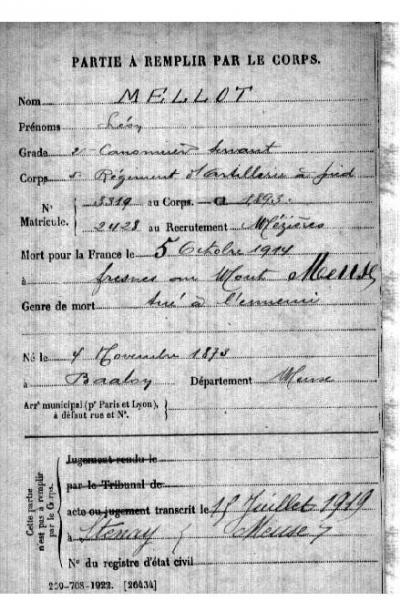 PARTIE À REMPLIR PAR LE CORPS.
Nom MELLOT
Prénoms Léon
Grade 2e Canonnier servant
Corps 5e Régiment d'artillerie à pied
N° Matricule. { 3319 au Corps. — Cl. 1893.
2428 au Recrutement Mézières
Mort pour la France le 5 Octobre 1914
à fresnes au Mont Meuse
Genre de mort tué à l'ennemi
Né le 4 Novembre 1873
à Baalon Département Meuse
Arrt municipal (pr Paris et Lyon), à défaut rue et N°. {
Cette partie n'est pas à remplir par le Corps.
Jugement rendu le
par le Tribunal de
acte ou jugement transcrit le 15 Juillet 1919
à Stenay (Meuse)
N° du registre d'état civil
209-708-1922. [26434]